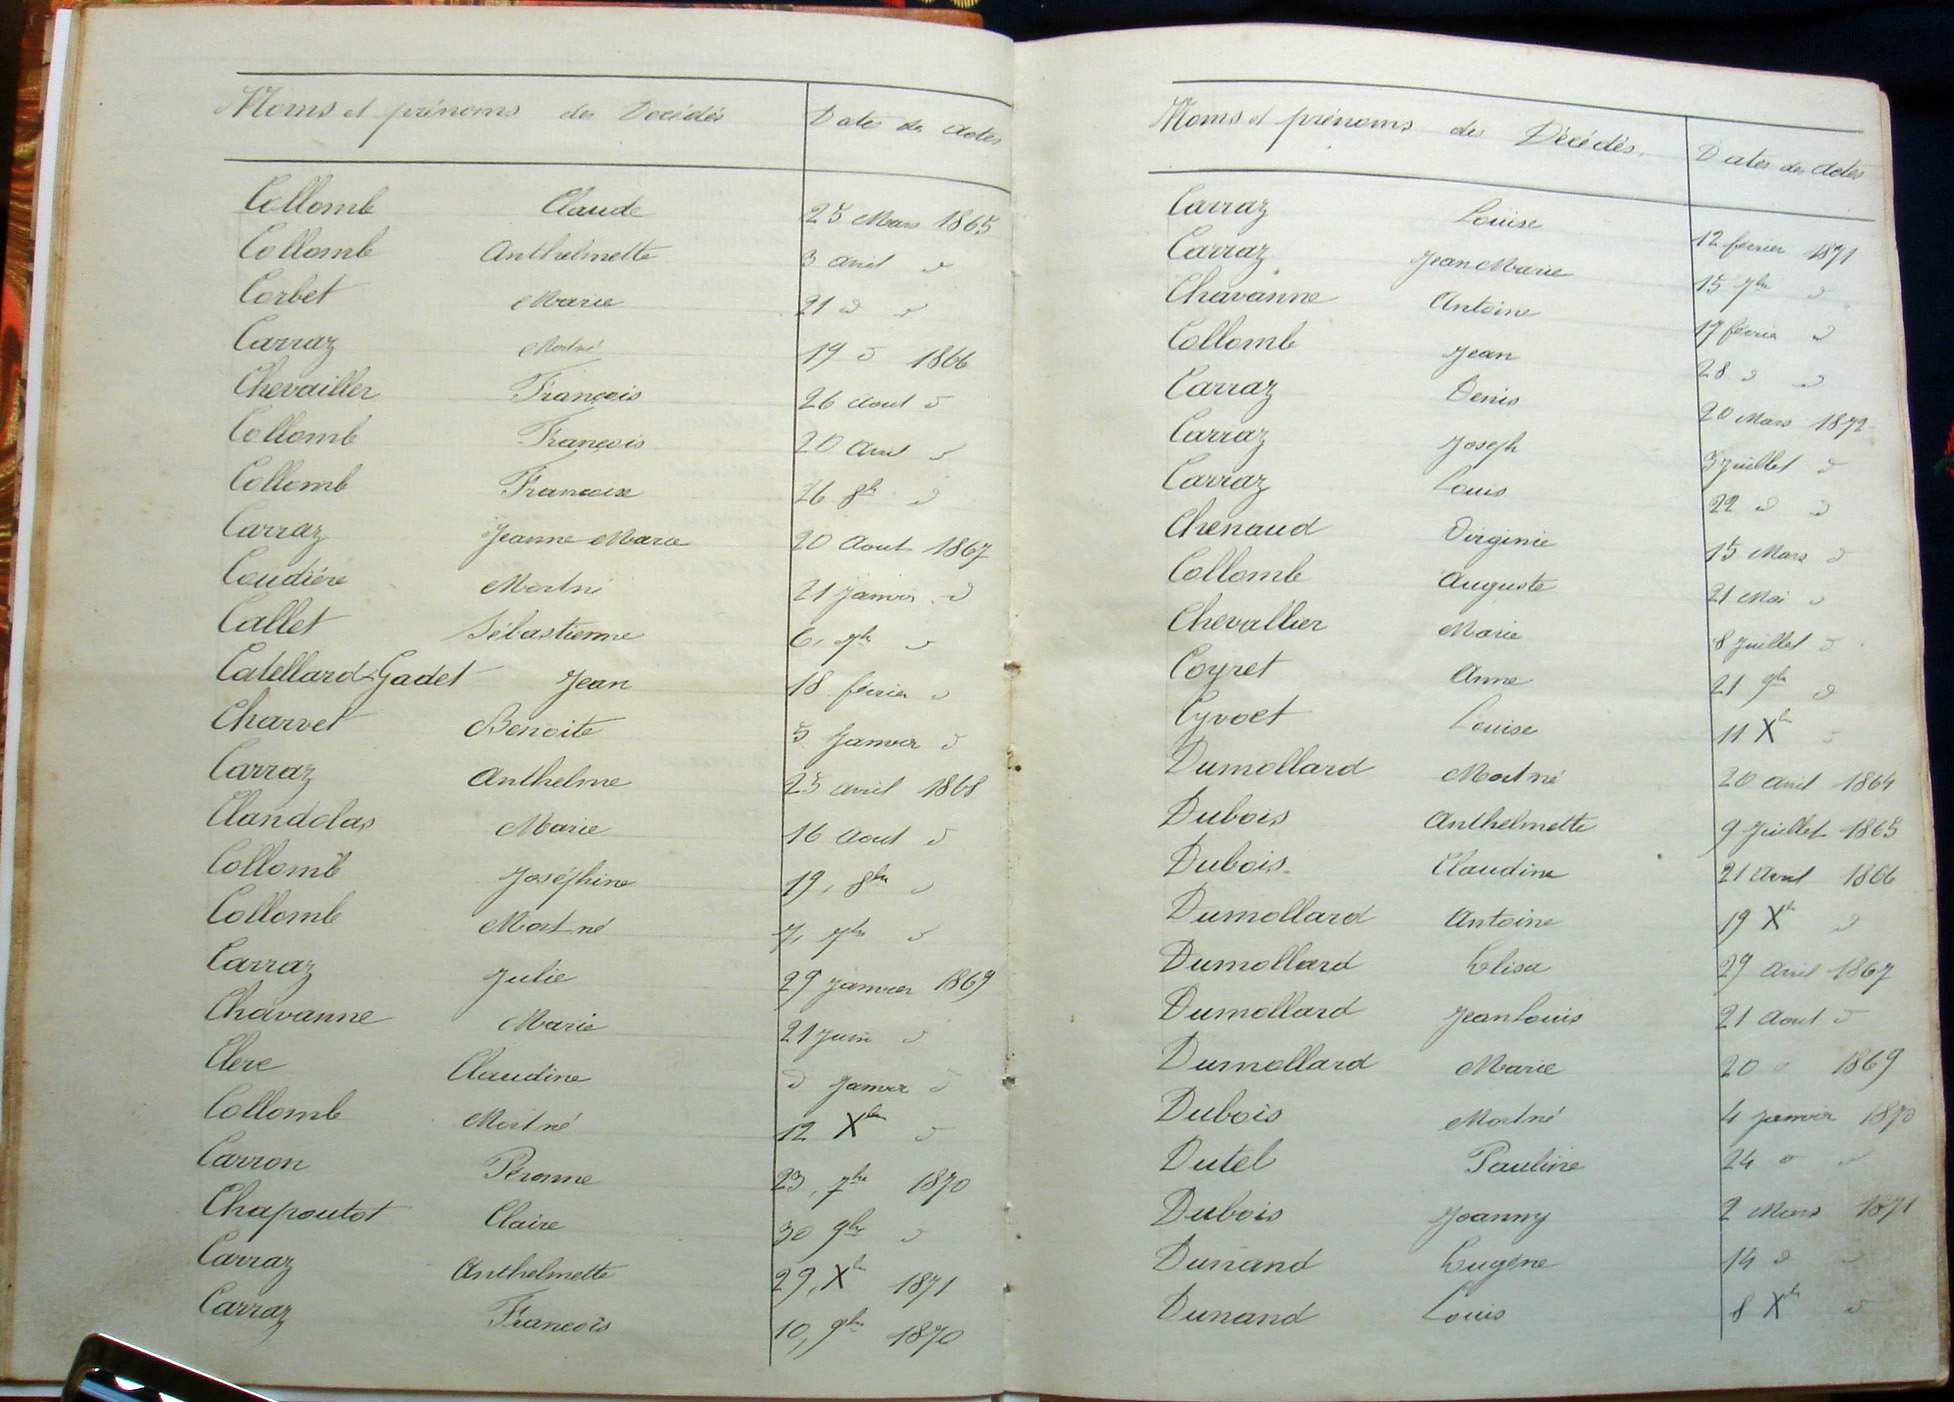 Noms et prénoms des Décédés Dates des actes
Collomb Claude 25 Mars 1865
Collomb Anthelmette 3 avril d
Corbet Marie 21 d d
Carraz Mortné 19 d 1866
Chevailler François 26 Aout d
Collomb François 20 Avril d
Collomb 26 8b d
Carraz Jeanne Marie 20 Aout 1867
Coudière Mortné 21 Janvier d
Callet Sébastienne 6, 7br d
Catellard-Gadet Jean 18 février d
Charvet Benoite 5 Janvier d
Carraz Anthelme 25 avril 1868
Clandolas Marie 16 Aout d
Collomb Joséphine 19, 8bre d
Collomb Mort né 7, 7bre d
Carraz Julie 29 Janvier 1869
Chavanne Marie 21 Juin d
Clerc Claudine d Janvier d
Collomb Mort né 12 Xbre d
Carron Péronne 23, 7bre 1870
Chapoutot Claire 30 9bre d
Carraz Anthelmette 29, Xb 1871
Carraz François 10, 9br 1870
Noms et prénoms des Décédés. Dates des Actes
Carraz Louise 12 février 1871
Carraz Jean Marie 15 7bre d
Chavanne Antoine 17 février d
Collomb Jean 28 d d
Carraz Denis 20 Mars 1872
Carraz Joseph 3 Juillet d
Carraz Louis 22 d d
Chenaud Virginie 15 Mars d
Collomb Auguste 21 Mai d
Chevallier Marie 8 Juillet d
Coyret Anne 21 9br d
Cyvoet Louise 11 Xb d
Dumollard Mort né 20 Avril 1864
Dubois Anthelmette 9 Juillet 1865
Dubois Claudine 21 Avril 1866
Dumollard Antoine 19 Xb d
Dumollard Elisa 29 Avril 1867
Dumollard Jean Louis 21 Aout d
Dumollard Marie 20 d 1869
Dubois Mortné 4 Janvier 1870
Dutel Pauline 24 d d
Dubois Joanny 2 Mars 1871
Dunand Eugène 14 d d
Dunand Louis 8 Xb d